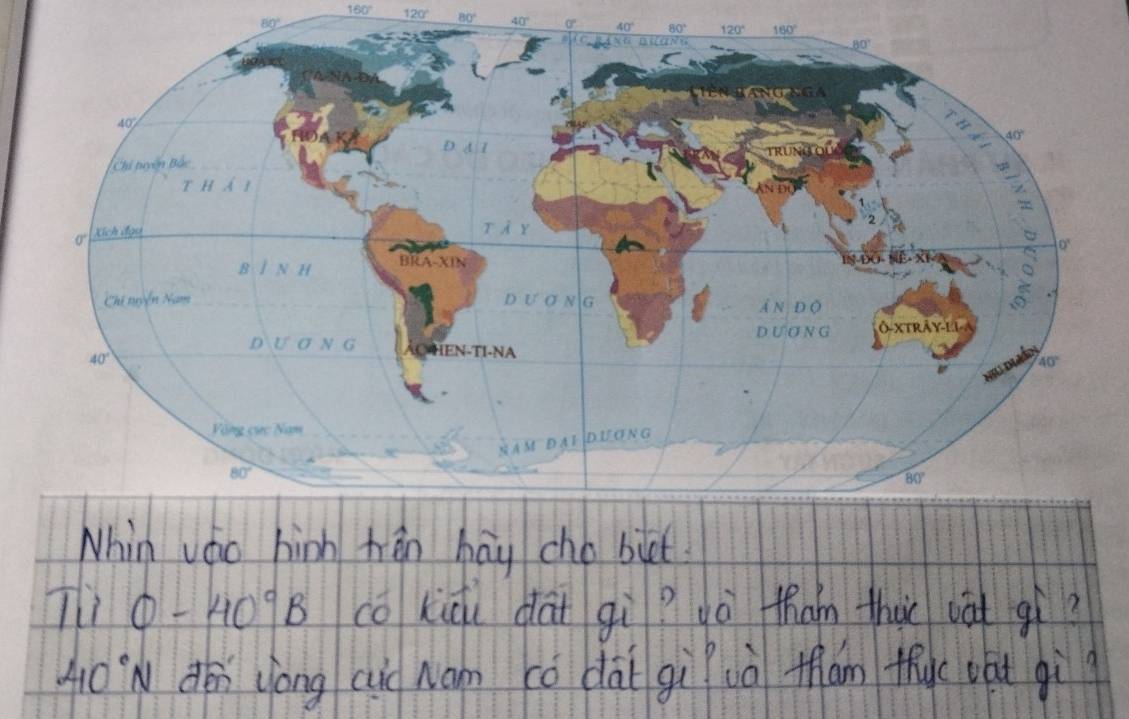 160° 120° 80° 40° 0° 40° 120° 160°
80° 80°
BẮC BĂNG DƯƠNG
CA-NA-ĐA LIÊN BANG NGA
40° 40°
HOA KÌ ĐẠI TRUNG QUỐC
I-RAN
Chí tuyến Bắc
THÁI ẤN ĐỘ THÁI BÌNH DƯƠNG
1
2
TÂY
0° Xích đạo 0°
BRA-XIN IN-ĐÔ-NÊ-XI-A
BÌNH
Chí tuyến Nam DƯƠNG ẤN ĐỘ
DƯƠNG Ô-XTRÂY-LI-A
DƯƠNG
40° AC-HEN-TI-NA NIU DI-LÂN 40°
Vòng cực Nam NAM ĐẠI DƯƠNG
80° 80°
Nhìn vào hình trên hãy cho biết.
Từ 0 - 40°B có kiểu đất gì? và thảm thực vật gì?
40°N đến vòng cực Nam có đất gì? và thảm thực vật gì?